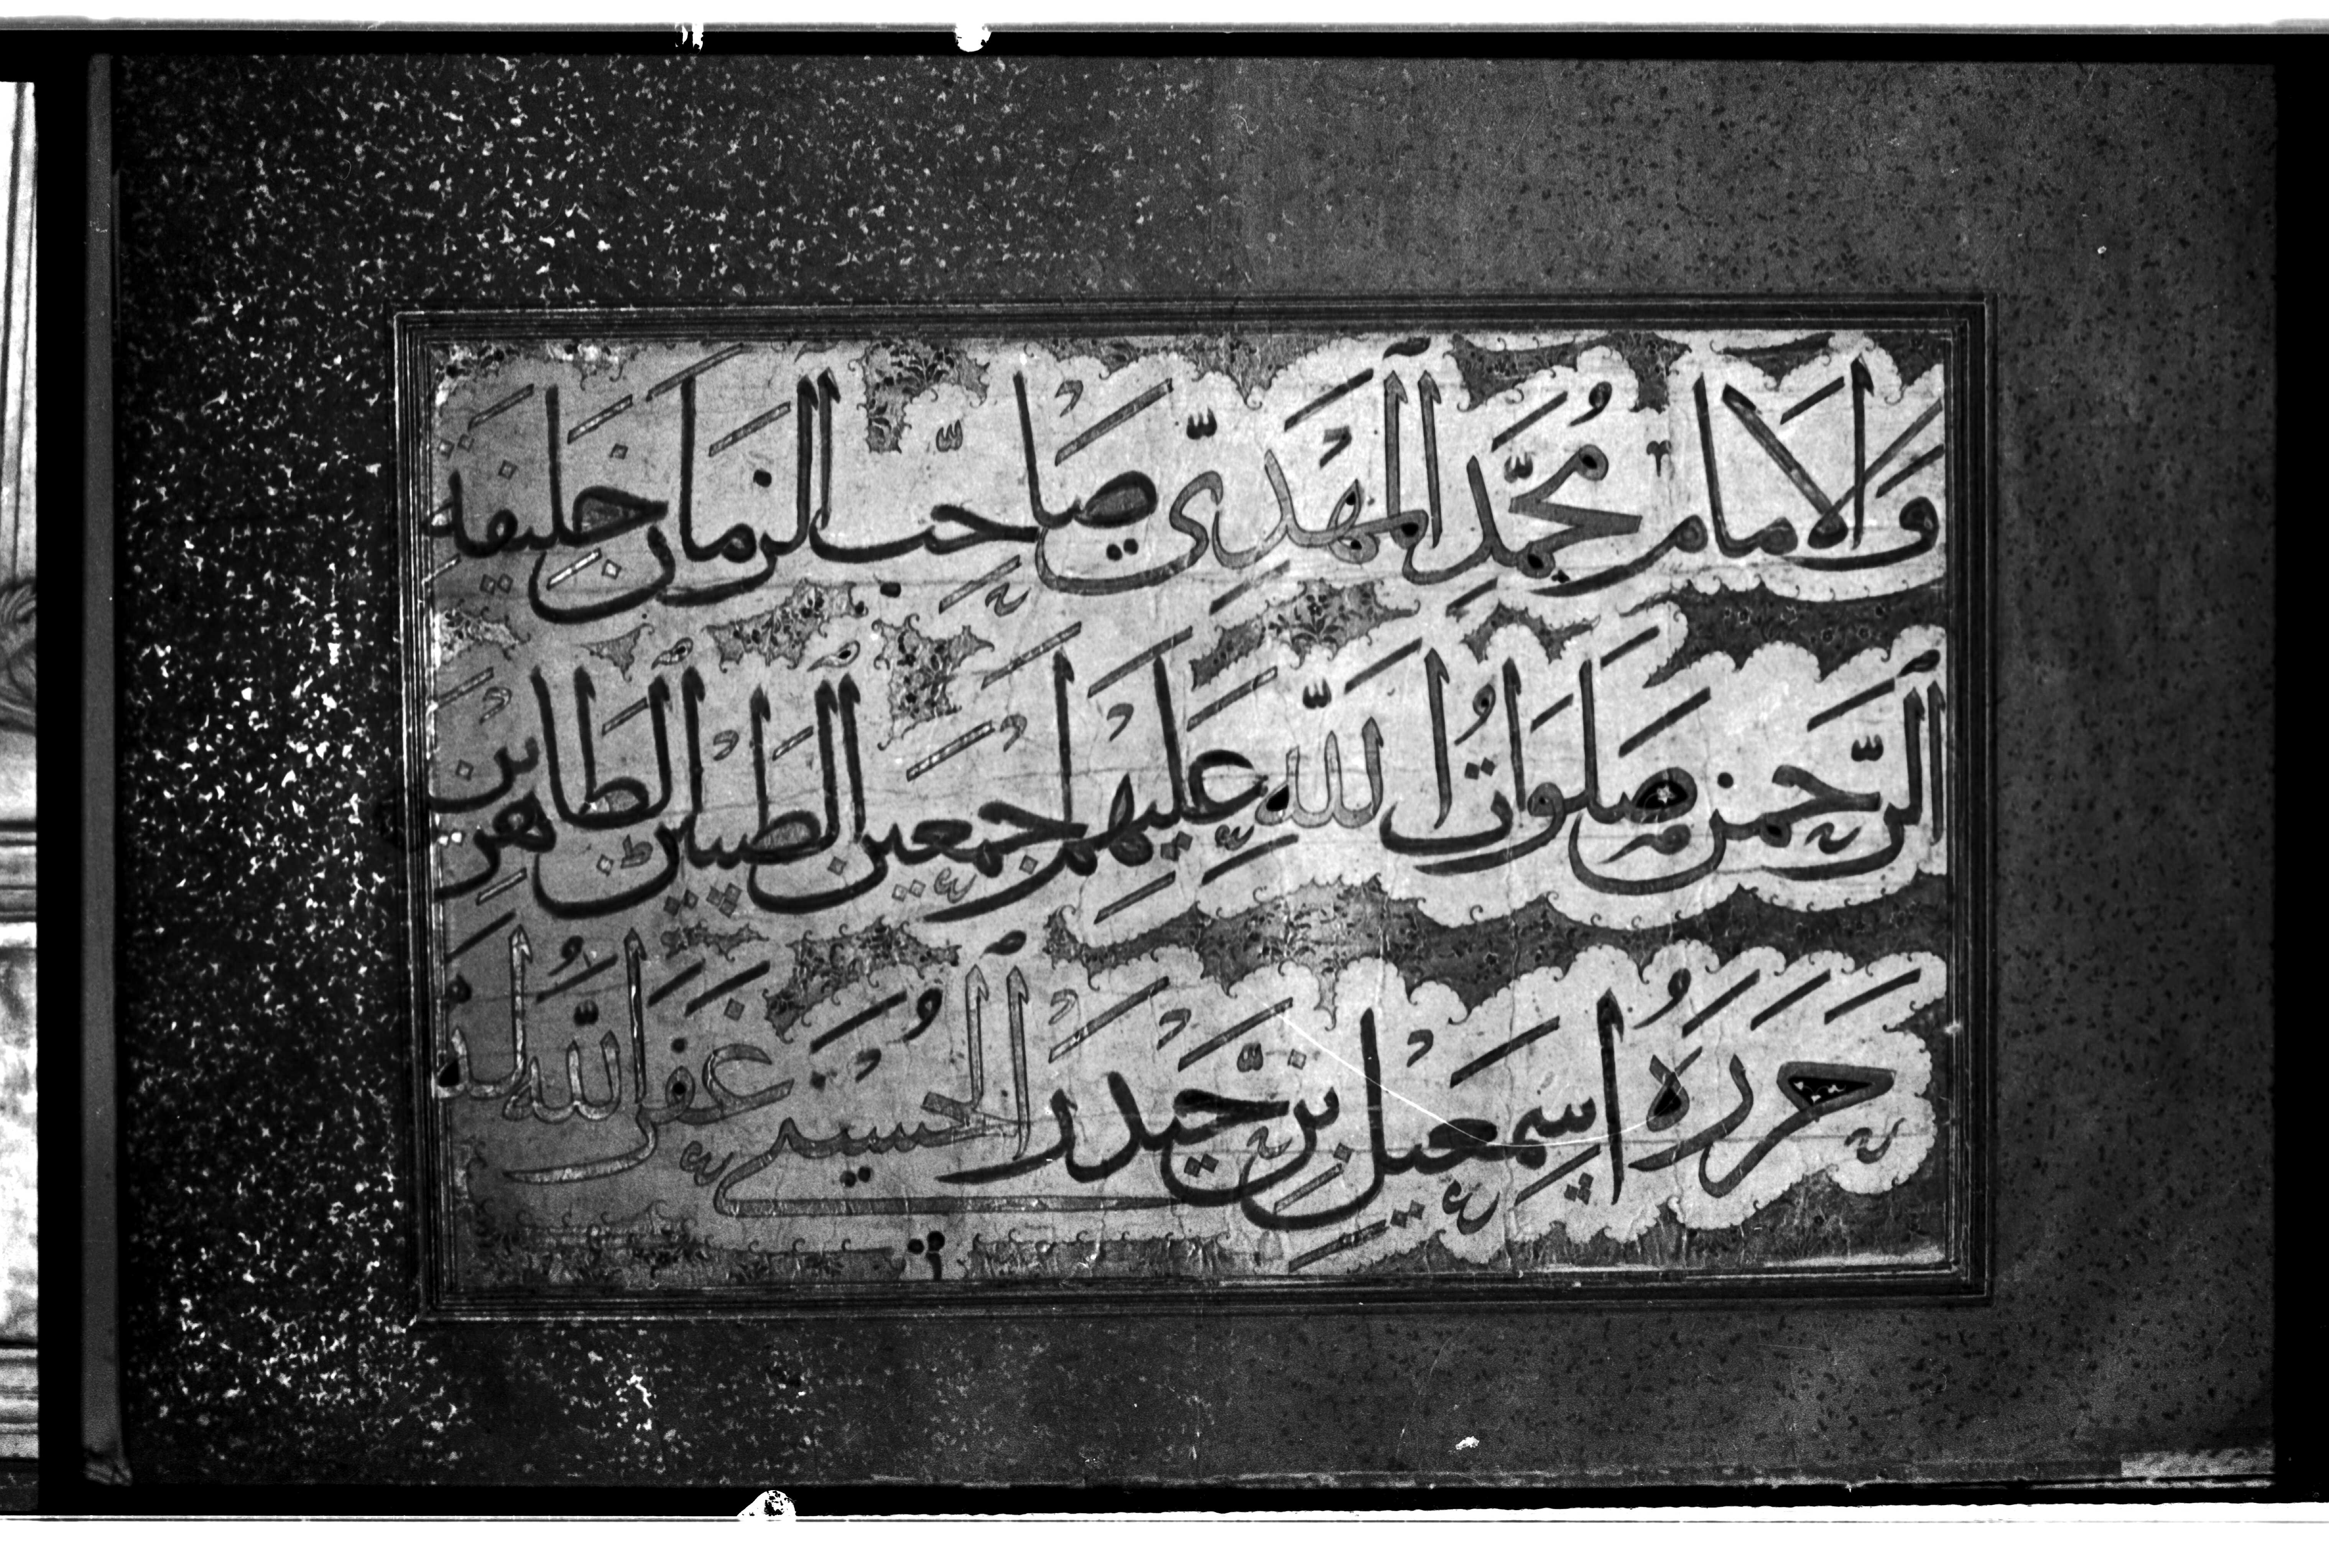 وَالْاِمَام مُحَمَّدِ الْمَهْدِيّ صَاحِب الزَّمَان خَلِيفَةِ
الرَّحْمٰن صَلَوَاتُ اللّٰهِ عَلَيْهِمْ اَجْمَعِين الطَّيِّبِين الطَّاهِرِين
حَرَّرَهُ اِسْمٰعِيل بْن حَيْدَر الْحُسَيْنِي غَفَرَ اللّٰهُ لَهُ